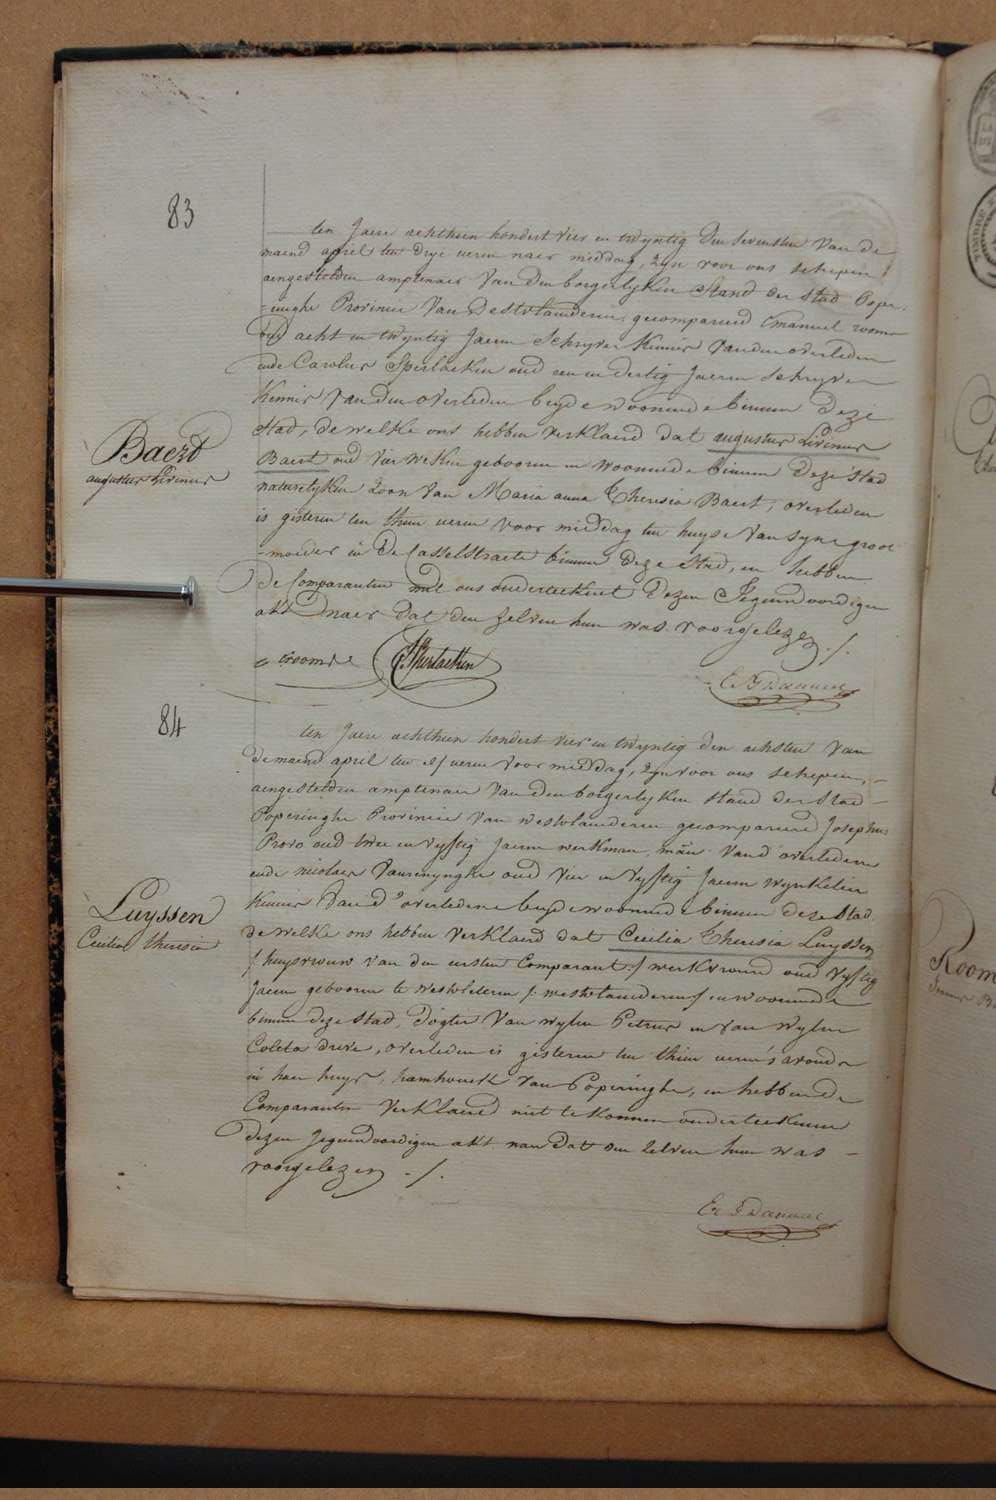 83
ten Jaere achthien hondert vier en twyntig den sevensten van de
maend april ten drye ueren naer middag, zyn voor ons schepen
aengestelden amptenaer van den borgerlyken stand der stad Pope-
-ringhe Provincie van Westvlaenderen gecompareerd Emanuel
oud acht en twyntig Jaeren Schryver kennis van den overleden
ende Carolus Sperlaeken oud een en dertig Jaeren schryver
kennis van den overleden beyde woonende binnen deze
Stad, de welke ons hebben verklaerd dat augustus Livinus
Baert oud vier weken gebooren en woonende binnen deze stad
naturelyken zoon van Maria anna Theresia Baert, overleden
is gisteren ten thien ueren voor middag ten huyse van syne groot
-moeder in de Casselstraete binnen deze stad, en hebben
de Comparanten met ons onderteekent dezen Jegenwoordigen
akt naer dat den zelven hun was voorgelezen ./.
Baert
augustus Livinus
84
ten Jaere achthien hondert vier en twyntig den achsten van
de maend april ten elf ueren voor middag, zyn voor ons schepen,
aengestelden amptenaer van den borgerlyken stand der stad
Poperinghe Provincie van westvlaenderen gecompareerd Josephus
Provo oud twee en vyftig Jaeren werkman, man van d'overledene
ende nicolaes oud vier en vyftig Jaeren wynkelier
kennis van d'overledene beyde woonende binnen deze Stad
de welke ons hebben verklaerd dat Cecilia Theresia Luyssen
/ huysvrouw van den eersten Comparant / werkvrouw oud vyftig
Jaeren gebooren te westvleteren / westvlaenderen / en woonende
binnen deze stad, dogter van wylen Petrus en van wylen
Coleta drive, overleden is gisteren ten thien ueren s'avonds
in haer huys, hamhouck van Poperinghe, en hebben de
Comparanten verklaerd niet te konnen onderteekenen
dezen Jegenwoordigen akt, naer dat den zelven hun was
voorgelezen ./.
Luyssen
Cecilia theresia
Room